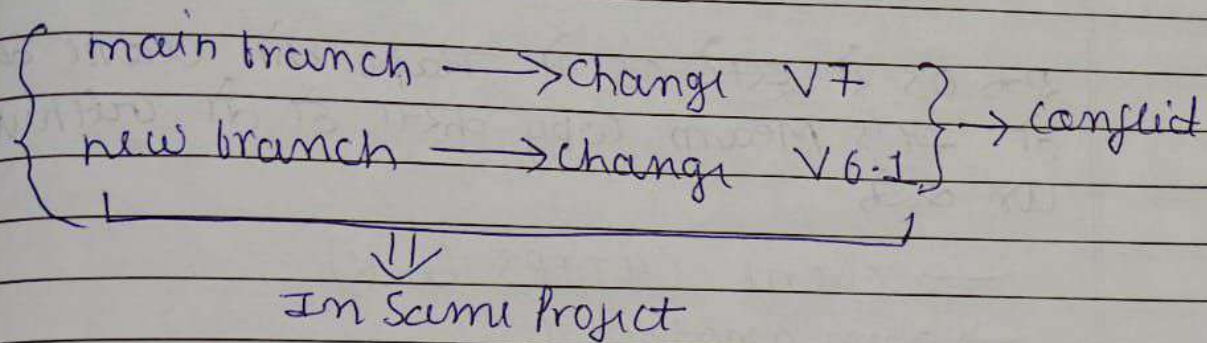 main branch → Change V7
new branch → change V6.1 → Conflict
⇓
In Same Project